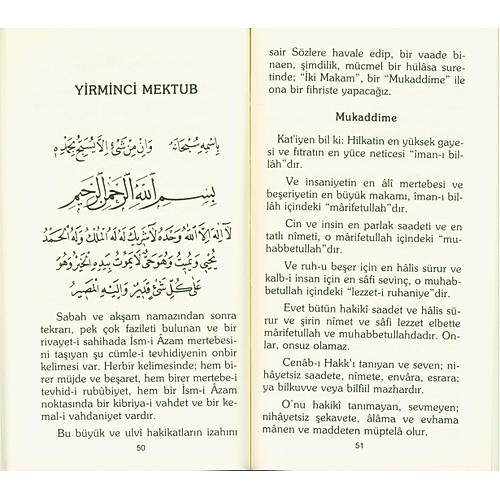 YİRMİNCİ MEKTUB
بِاسْمِهِ سُبْحَانَهُ وَاِنْ مِنْ شَىْءٍ اِلَّا يُسَبِّحُ بِحَمْدِهِ
بِسْمِ اللّٰهِ الرَّحْمٰنِ الرَّحِيمِ
لَا اِلٰهَ اِلَّا اللّٰهُ وَحْدَهُ لَا شَرِيكَ لَهُ لَهُ الْمُلْكُ وَلَهُ الْحَمْدُ
يُحْيِى وَيُمِيتُ وَهُوَ حَىٌّ لَا يَمُوتُ بِيَدِهِ الْخَيْرُ وَهُوَ
عَلٰى كُلِّ شَىْءٍ قَدِيرٌ وَاِلَيْهِ الْمَصِيرُ
Sabah ve akşam namazından sonra
tekrarı, pek çok fazileti bulunan ve bir
rivayet-i sahihada İsm-i Âzam mertebesi-
ni taşıyan şu cümle-i tevhidiyenin onbir
kelimesi var. Herbir kelimesinde; hem bi-
rer müjde ve beşaret, hem birer mertebe-i
tevhid-i rubûbiyet, hem bir İsm-i Âzam
noktasında bir kibriya-i vahdet ve bir ke-
mal-i vahdaniyet vardır.
Bu büyük ve ulvî hakikatların izahını
50
sair Sözlere havale edip, bir vaade bi-
naen, şimdilik, mücmel bir hülâsa sure-
tinde; "İki Makam", bir "Mukaddime" ile
ona bir fihriste yapacağız.
Mukaddime
Kat'iyen bil ki: Hilkatin en yüksek gaye-
si ve fıtratın en yüce neticesi "iman-ı bil-
lâh"dır.
Ve insaniyetin en âlî mertebesi ve
beşeriyetin en büyük makamı, iman-ı bil-
lâh içindeki "mârifetullah"dır.
Cin ve insin en parlak saadeti ve en
tatlı nîmeti, o mârifetullah içindeki "mu-
habbetullah"dır.
Ve ruh-u beşer için en hâlis sürur ve
kalb-i insan için en sâfi sevinç, o muhab-
betullah içindeki "lezzet-i ruhaniye"dir.
Evet bütün hakikî saadet ve hâlis sü-
rur ve şirin nîmet ve sâfi lezzet elbette
mârifetullah ve muhabbetullahdadır. On-
lar, onsuz olamaz.
Cenâb-ı Hakk'ı tanıyan ve seven; ni-
hâyetsiz saadete, nîmete, envâra, esrara;
ya bilkuvve veya bilfiil mazhardır.
O'nu hakikî tanımayan, sevmeyen;
nihâyetsiz şekavete, âlâma ve evhama
mânen ve maddeten müptelâ olur.
51